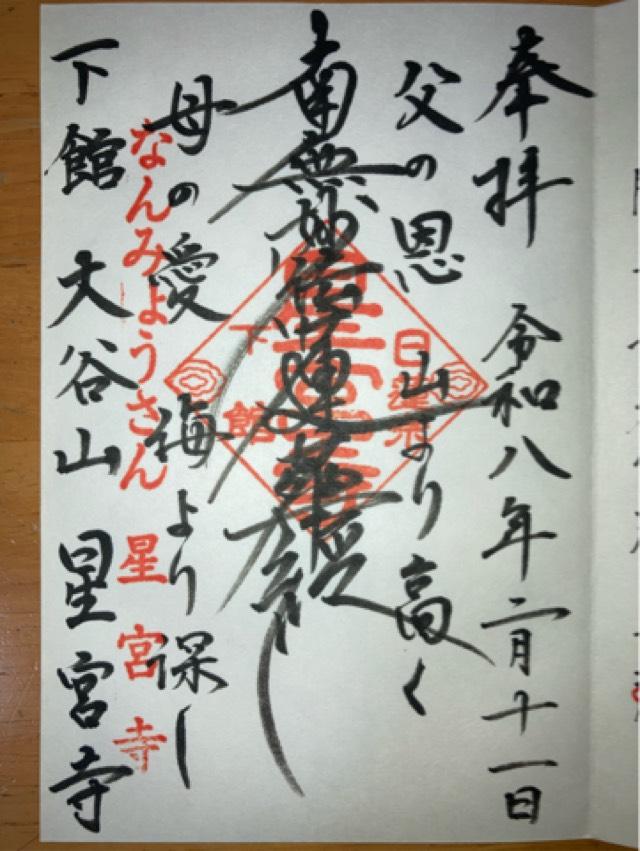 奉拝 令和八年二月十一日
父の恩 山より高く
南無妙法蓮華経
日蓮宗
下館
母の愛 海より深し
なんみょうさん 星宮寺
下館 大谷山 星宮寺